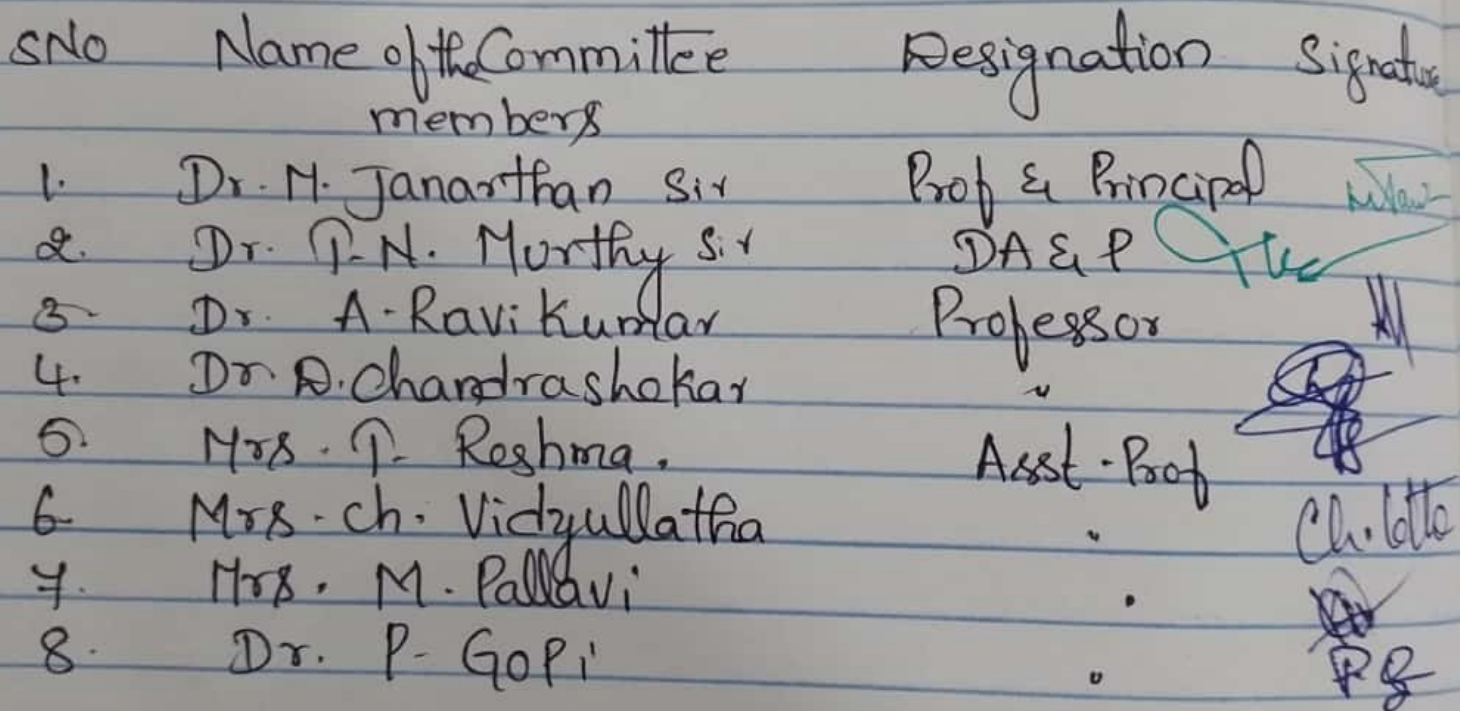 SNo Name of the Committee Designation Signature
members
1. Dr. M. Janarthan Sir Prof & Principal
2. Dr. T. N. Murthy Sir DA & P
3. Dr. A. Ravi Kumar Professor
4. Dr. D. Chandrashekar "
5. Mrs. T. Reshma. Asst. Prof
6. Mrs. Ch. Vidyullatha " Ch. latha
7. Mrs. M. Pallavi "
8. Dr. P. Gopi "